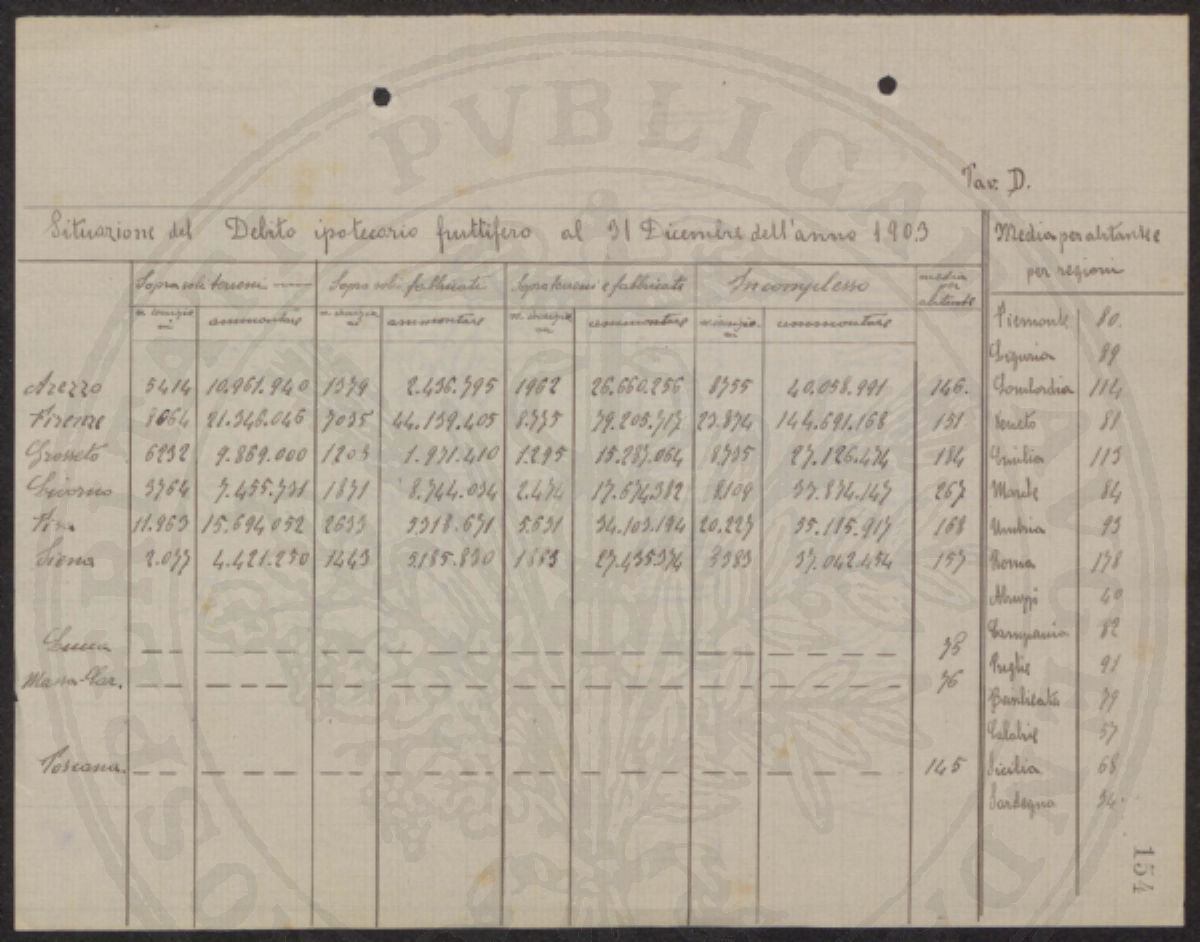 Tav. D.
Situazione del Debito ipotecario fruttifero al 31 Dicembre dell'anno 1903
Media per abitante
per regioni
Sopra soli terreni Sopra soli fabbricati Sopra terreni e fabbricati In complesso media per abitante
ammontare ammontare ammontare ammontare
Arezzo 5414 10.961.940 1379 2.436.795 1962 26.660.256 8755 40.058.991 146.
Firenze 8064 21.346.046 7035 44.139.405 8.775 79.205.717 23.874 144.691.168 151
Grosseto 6232 9.869.000 1203 1.971.410 1.295 15.287.064 8735 27.126.474 184
Livorno 3764 7.455.731 1871 8.744.034 2.474 17.674.382 8.109 33.874.147 267
Pisa 11.963 15.694.052 2633 5318.671 5.631 34.103.194 20.227 55.115.917 168
Siena 2.077 4.421.250 1443 5185.830 1883 27.435374 5383 37.042.454 157
Lucca 35
Massa-Car. 36
Toscana. 145
Piemonte 80.
Liguria 89
Lombardia 114
Veneto 81
Emilia 113
Marche 84
Umbria 93
Roma 178
Abruzzi 40
Campania 82
Puglie 91
Basilicata 79
Calabrie 57
Sicilia 68
Sardegna 34.
154
PVBLICA